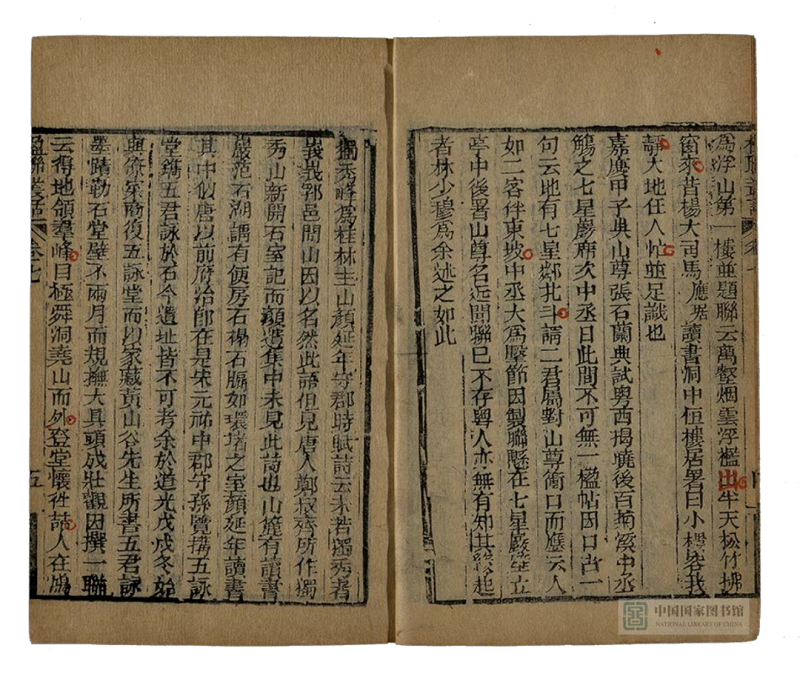 為浮山第一樓並題聯云萬壑烟雲浮檻出半天松竹拂
窗來昔楊大司馬應琚讀書洞中恆樓居署曰小樓容我
靜大地任人忙並足識也
嘉慶甲子典山尊張石蘭典試粵西揭曉後百菊溪中丞
觴之七星巖席次中丞曰此間不可無一楹帖因口占一
句云地有七星鄰北斗請二君屬對山尊衝口而應云人
如二客伴東坡中丞大為擊節因製聯懸在七星巖
亭中後署山尊名近聞聯已不存粵人亦無有知其緣起
者林少穆為余述之如此
獨秀峰為桂林主山顏延年守郡時賦詩云未若獨秀者
峩峩郛邑間山因以名然此語但見唐人鄭叔齊所作獨
秀山新開石室記而顏遺集中未見此詩也山麓有讀書
巖范石湖謂有便房石榻石牖如環堵之室顏延年讀書
其中似唐以前廨治即在是宋元祐中郡守孫覽搆五詠
堂鐫五君詠於石今遺址皆不可考余於道光戊戌冬始
與僚寀商復五詠堂而以家藏黃山谷先生所書五君詠
墨蹟勒石堂壁不兩月而規撫大具頭成壯觀因撰一聯
云得地領羣峰目極舜洞堯山而外登堂懷往喆人在鴻
楹聯叢話
卷七
五
中国国家图书馆
NATIONAL LIBRARY OF CHINA